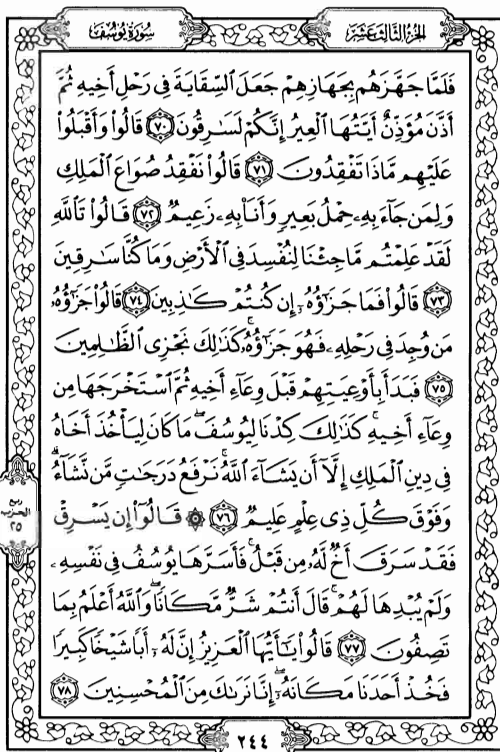 الجزء الثالث عشر
سورة يوسف
فَلَمَّا جَهَّزَهُم بِجَهَازِهِمْ جَعَلَ ٱلسِّقَايَةَ فِى رَحْلِ أَخِيهِ ثُمَّ
أَذَّنَ مُؤَذِّنٌ أَيَّتُهَا ٱلْعِيرُ إِنَّكُمْ لَسَٰرِقُونَ ﴿٧٠﴾ قَالُوا۟ وَأَقْبَلُوا۟
عَلَيْهِم مَّاذَا تَفْقِدُونَ ﴿٧١﴾ قَالُوا۟ نَفْقِدُ صُوَاعَ ٱلْمَلِكِ
وَلِمَن جَآءَ بِهِۦ حِمْلُ بَعِيرٍ وَأَنَا۠ بِهِۦ زَعِيمٌ ﴿٧٢﴾ قَالُوا۟ تَٱللَّهِ
لَقَدْ عَلِمْتُم مَّا جِئْنَا لِنُفْسِدَ فِى ٱلْأَرْضِ وَمَا كُنَّا سَٰرِقِينَ
﴿٧٣﴾ قَالُوا۟ فَمَا جَزَٰٓؤُهُۥٓ إِن كُنتُمْ كَٰذِبِينَ ﴿٧٤﴾ قَالُوا۟ جَزَٰٓؤُهُۥ
مَن وُجِدَ فِى رَحْلِهِۦ فَهُوَ جَزَٰٓؤُهُۥ ۚ كَذَٰلِكَ نَجْزِى ٱلظَّٰلِمِينَ
﴿٧٥﴾ فَبَدَأَ بِأَوْعِيَتِهِمْ قَبْلَ وِعَآءِ أَخِيهِ ثُمَّ ٱسْتَخْرَجَهَا مِن
وِعَآءِ أَخِيهِ ۚ كَذَٰلِكَ كِدْنَا لِيُوسُفَ ۖ مَا كَانَ لِيَأْخُذَ أَخَاهُ
فِى دِينِ ٱلْمَلِكِ إِلَّآ أَن يَشَآءَ ٱللَّهُ ۚ نَرْفَعُ دَرَجَٰتٍ مَّن نَّشَآءُ ۗ
وَفَوْقَ كُلِّ ذِى عِلْمٍ عَلِيمٌ ﴿٧٦﴾ ۞ قَالُوٓا۟ إِن يَسْرِقْ
ربع
الحزب
٢٥
فَقَدْ سَرَقَ أَخٌ لَّهُۥ مِن قَبْلُ ۚ فَأَسَرَّهَا يُوسُفُ فِى نَفْسِهِۦ
وَلَمْ يُبْدِهَا لَهُمْ ۚ قَالَ أَنتُمْ شَرٌّ مَّكَانًا ۖ وَٱللَّهُ أَعْلَمُ بِمَا
تَصِفُونَ ﴿٧٧﴾ قَالُوا۟ يَٰٓأَيُّهَا ٱلْعَزِيزُ إِنَّ لَهُۥٓ أَبًا شَيْخًا كَبِيرًا
فَخُذْ أَحَدَنَا مَكَانَهُۥٓ ۖ إِنَّا نَرَىٰكَ مِنَ ٱلْمُحْسِنِينَ ﴿٧٨﴾
٢٤٤